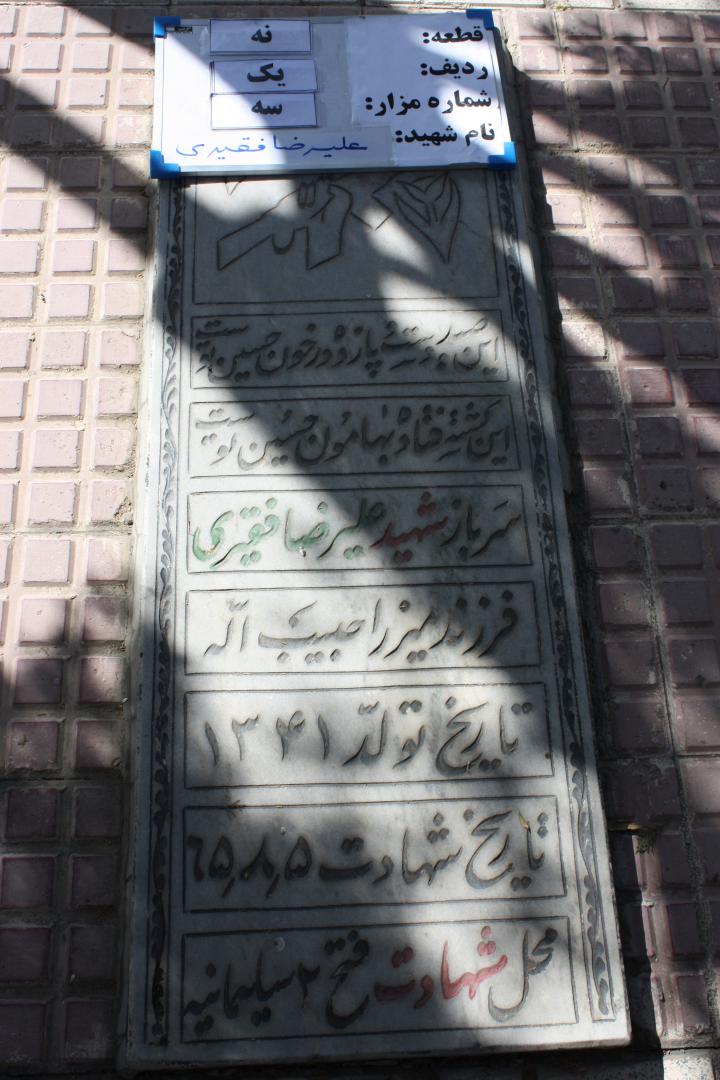 قطعه: نه
ردیف: یک
شماره مزار: سه
نام شهید: علیرضا فقیری
این صید دست و پا زده در خون حسین توست
این کشته فتاده بهامون حسین توست
سرباز شهید علیرضا فقیری
فرزند میرزا حبیب اله
تاریخ تولد ۱۳۴۱
تاریخ شهادت ۶۵٫۸٫۵
محل شهادت فتح ۲ سلیمانیه